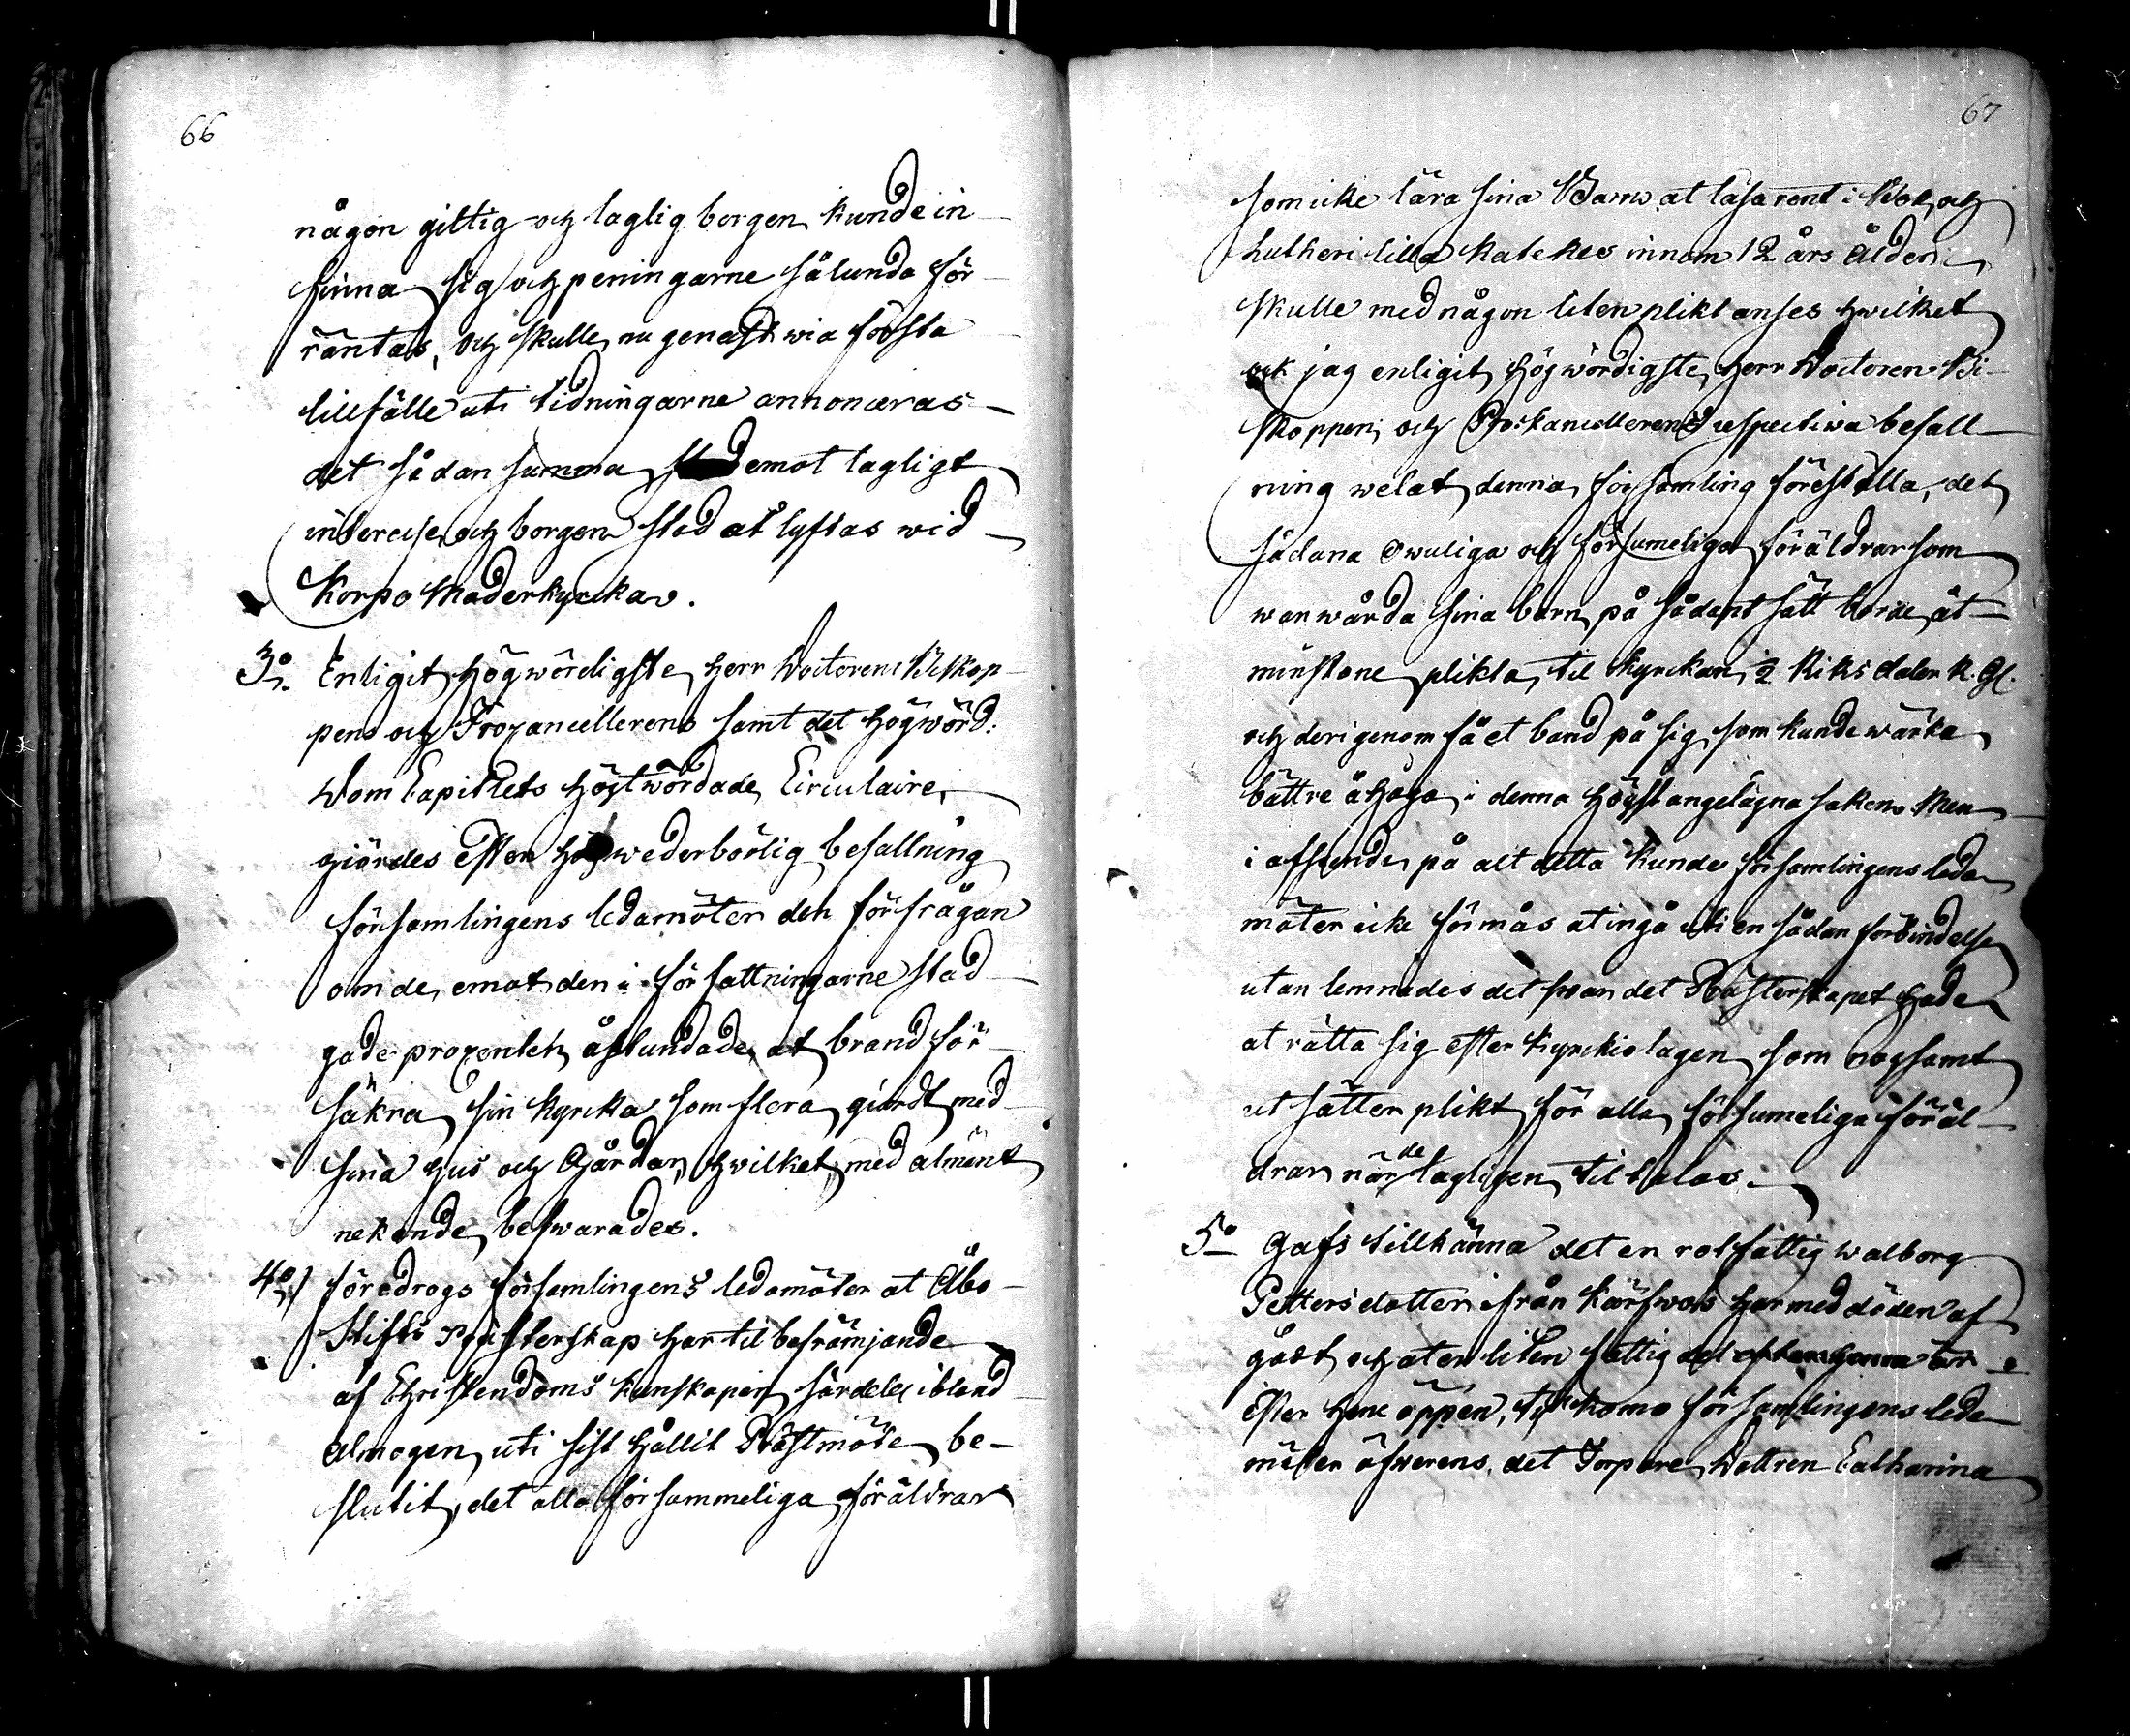 66
någon giltig och laglig borgen kunde in-
finna sig och peningarne sålunda för-
räntas, och skulle nu genast wia första
tillfälle uti tidningarne annonceras
det sådan summa emot lagligt
interesse och borgen stod at lyftas wid
Korpo Moderkyrcka.
3o. Enligit högwördigste herr Doctorens Biskop-
pens och Procancellerens samt det högwörd:
Dom Capitlets högtwördade Circulaire
giördes efter hög wederbörlig befallning
församlingens ledamöter den förfrågan
om de, emot den i författningarne stad-
gade procenten åstundade, at brandför-
säkra sin kyrcka som flera giordt med
sina hus och Gårdar, hwilket med almänt
nekande beswarades.
4o) föredrogs församlingens ledamöter at Åbo
Stifts Prästerskap har til befrämjande
af Christendoms kunskapen särdeles ibland
almogen, uti sist hållit Prästmöte be-
slutit, det alla försummeliga föräldrar
67
som icke lära sina Barn at läsa rent i Bok, och
Lutheri lilla katekes innom 12 års ålder
skulle med någon liten plikt anses hwilket
ock jag enligit Högwördigste herr Doctoren Bi-
skoppens och Prokancellerens respectiwa befall-
ning welat denna församling föreställa, det
sådana owuliga och försumeliga föräldrar som
wanwårda sina barn på sådant sätt borde åt-
minstone plikta til kyrckan 2 Riksdaler R. Gl.
och derigenom få et band på sig, som kunde wärka
bättre åhåga i denna högst angelägna saken. Men
i afseende på alt detta kunde församlingens leda-
möter icke förmås at ingå uti en sådan förbindelse
utan lemnades det som det Prästerskapet hade
at rätta sig efter kyrckiolagen som nogsamt
utsätter plikt för alla försumeliga föräl-
drar när de lagligen tiltalas.
5o Gafs tillkänna det en rotfattig Walborg
Petters dotter ifrån Kärfwas har med döden af
gådt, och at en liten fattig del efter henne är
efter hene öppen, ty komo församlingens leda-
möter öfwerens, det Torpare Dottren Catharina